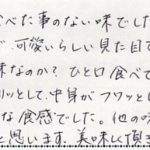 べた事のない味でした
可愛いらしい見た目で
味なのか？ひと口食べて
リッとして、中身がフワッと
な食感でした。他の味
と思います。美味しく頂き